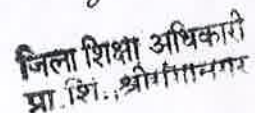 जिला शिक्षा अधिकारी
प्रा. शि., श्रीगंगानगर